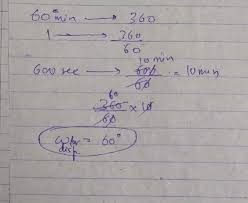 60 min → 360
1 → 360/60
600 sec → 600/60 = 10 min
10 min
360/60 × 10
60
disp. = 60°